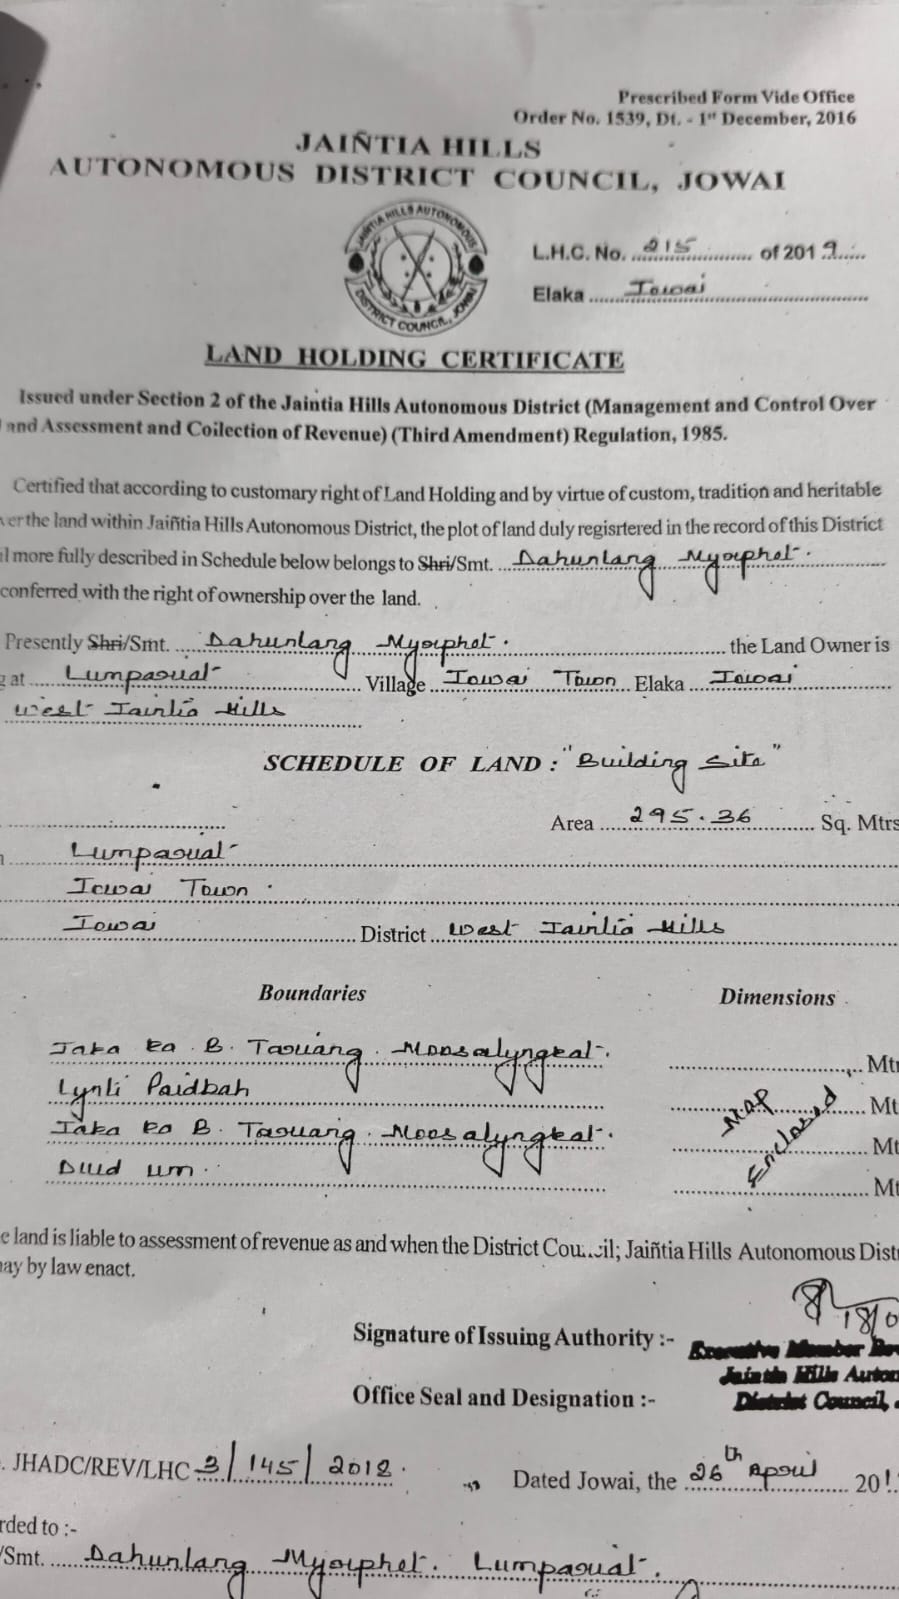 Prescribed Form Vide Office
Order No. 1539, Dt. - 1st December, 2016
JAIÑTIA HILLS
AUTONOMOUS DISTRICT COUNCIL, JOWAI
JAIÑTIA HILLS AUTONOMOUS DISTRICT COUNCIL, JOWAI
L.H.C. No. 215 of 2019
Elaka Jowai
LAND HOLDING CERTIFICATE
Issued under Section 2 of the Jaintia Hills Autonomous District (Management and Control Over
and Assessment and Collection of Revenue) (Third Amendment) Regulation, 1985.
Certified that according to customary right of Land Holding and by virtue of custom, tradition and heritable
ver the land within Jaiñtia Hills Autonomous District, the plot of land duly regisrtered in the record of this District
il more fully described in Schedule below belongs to Shri/Smt. Dahunlang Myrphet.
conferred with the right of ownership over the land.
Presently Shri/Smt. Dahunlang Myrphet. the Land Owner is
g at Lumpariat Village Jowai Town Elaka Jowai
West Jaintia Hills
SCHEDULE OF LAND : "Building Site"
Area 295.36 Sq. Mtrs
Lumpariat
Jowai Town.
Jowai District West Jaintia Hills
Boundaries Dimensions
Jaka ka B. Tariang. Moosalyngkat. Mtr
Lynti Paidbah Mt
Jaka ka B. Tariang. Moosalyngkat. Mt
Duid um. Mt
Map Enclosed
e land is liable to assessment of revenue as and when the District Council; Jaiñtia Hills Autonomous Distr
may by law enact.
Signature of Issuing Authority :-
Executive Member Rev
Jaintia Hills Auton
Office Seal and Designation :- District Council,
. JHADC/REV/LHC 3/145/2018. Dated Jowai, the 26th April 201
rded to :-
/Smt. Dahunlang Myrphet. Lumpariat.